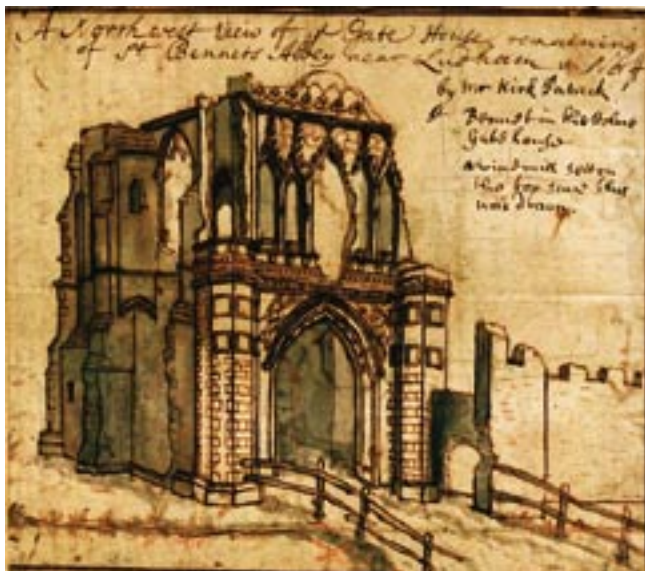 A North west View of ye Gate House remaining
of St Bennets Abbey near Ludham
by Mr Kirk Patrick
house
a windmill set on
this top since this
was drawn